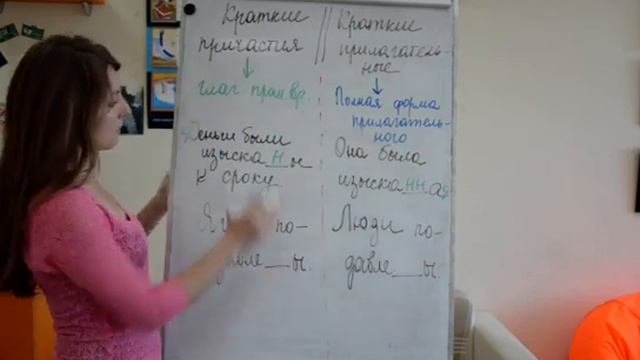 Краткие
причастия
↓
глаг прош.вр.
Деньги были
изыска н ы
к сроку
Я по-
давле__ы.
Краткие
прилагатель-
ные
↓
Полная форма
прилагатель-
ного
Она была
изыска нн ая
Люди по-
давле__ы.